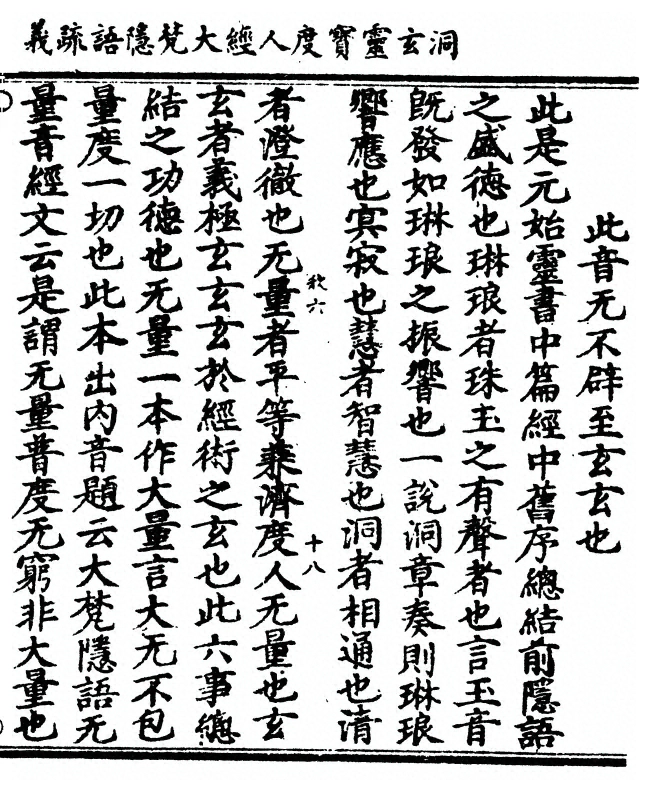 洞玄靈寶度人經大梵隱語疏義
此音无不辟至玄玄也
此是元始靈書中篇經中舊序總結前隱語
之盛德也琳琅者珠玉之有聲者也言玉音
既發如琳琅之振響也一說洞章奏則琳琅
響應也寂寂也慧者智慧也洞者相通也清
者澄徹也无量者平等乘濟度人无量也玄
玄者義極玄玄玄於經術之玄也此六事總
結之功德也无量一本作大量言大无不包
量度一切也此本出內音題云大梵隱語无
量音經文云是謂无量普度无窮非大量也
十八